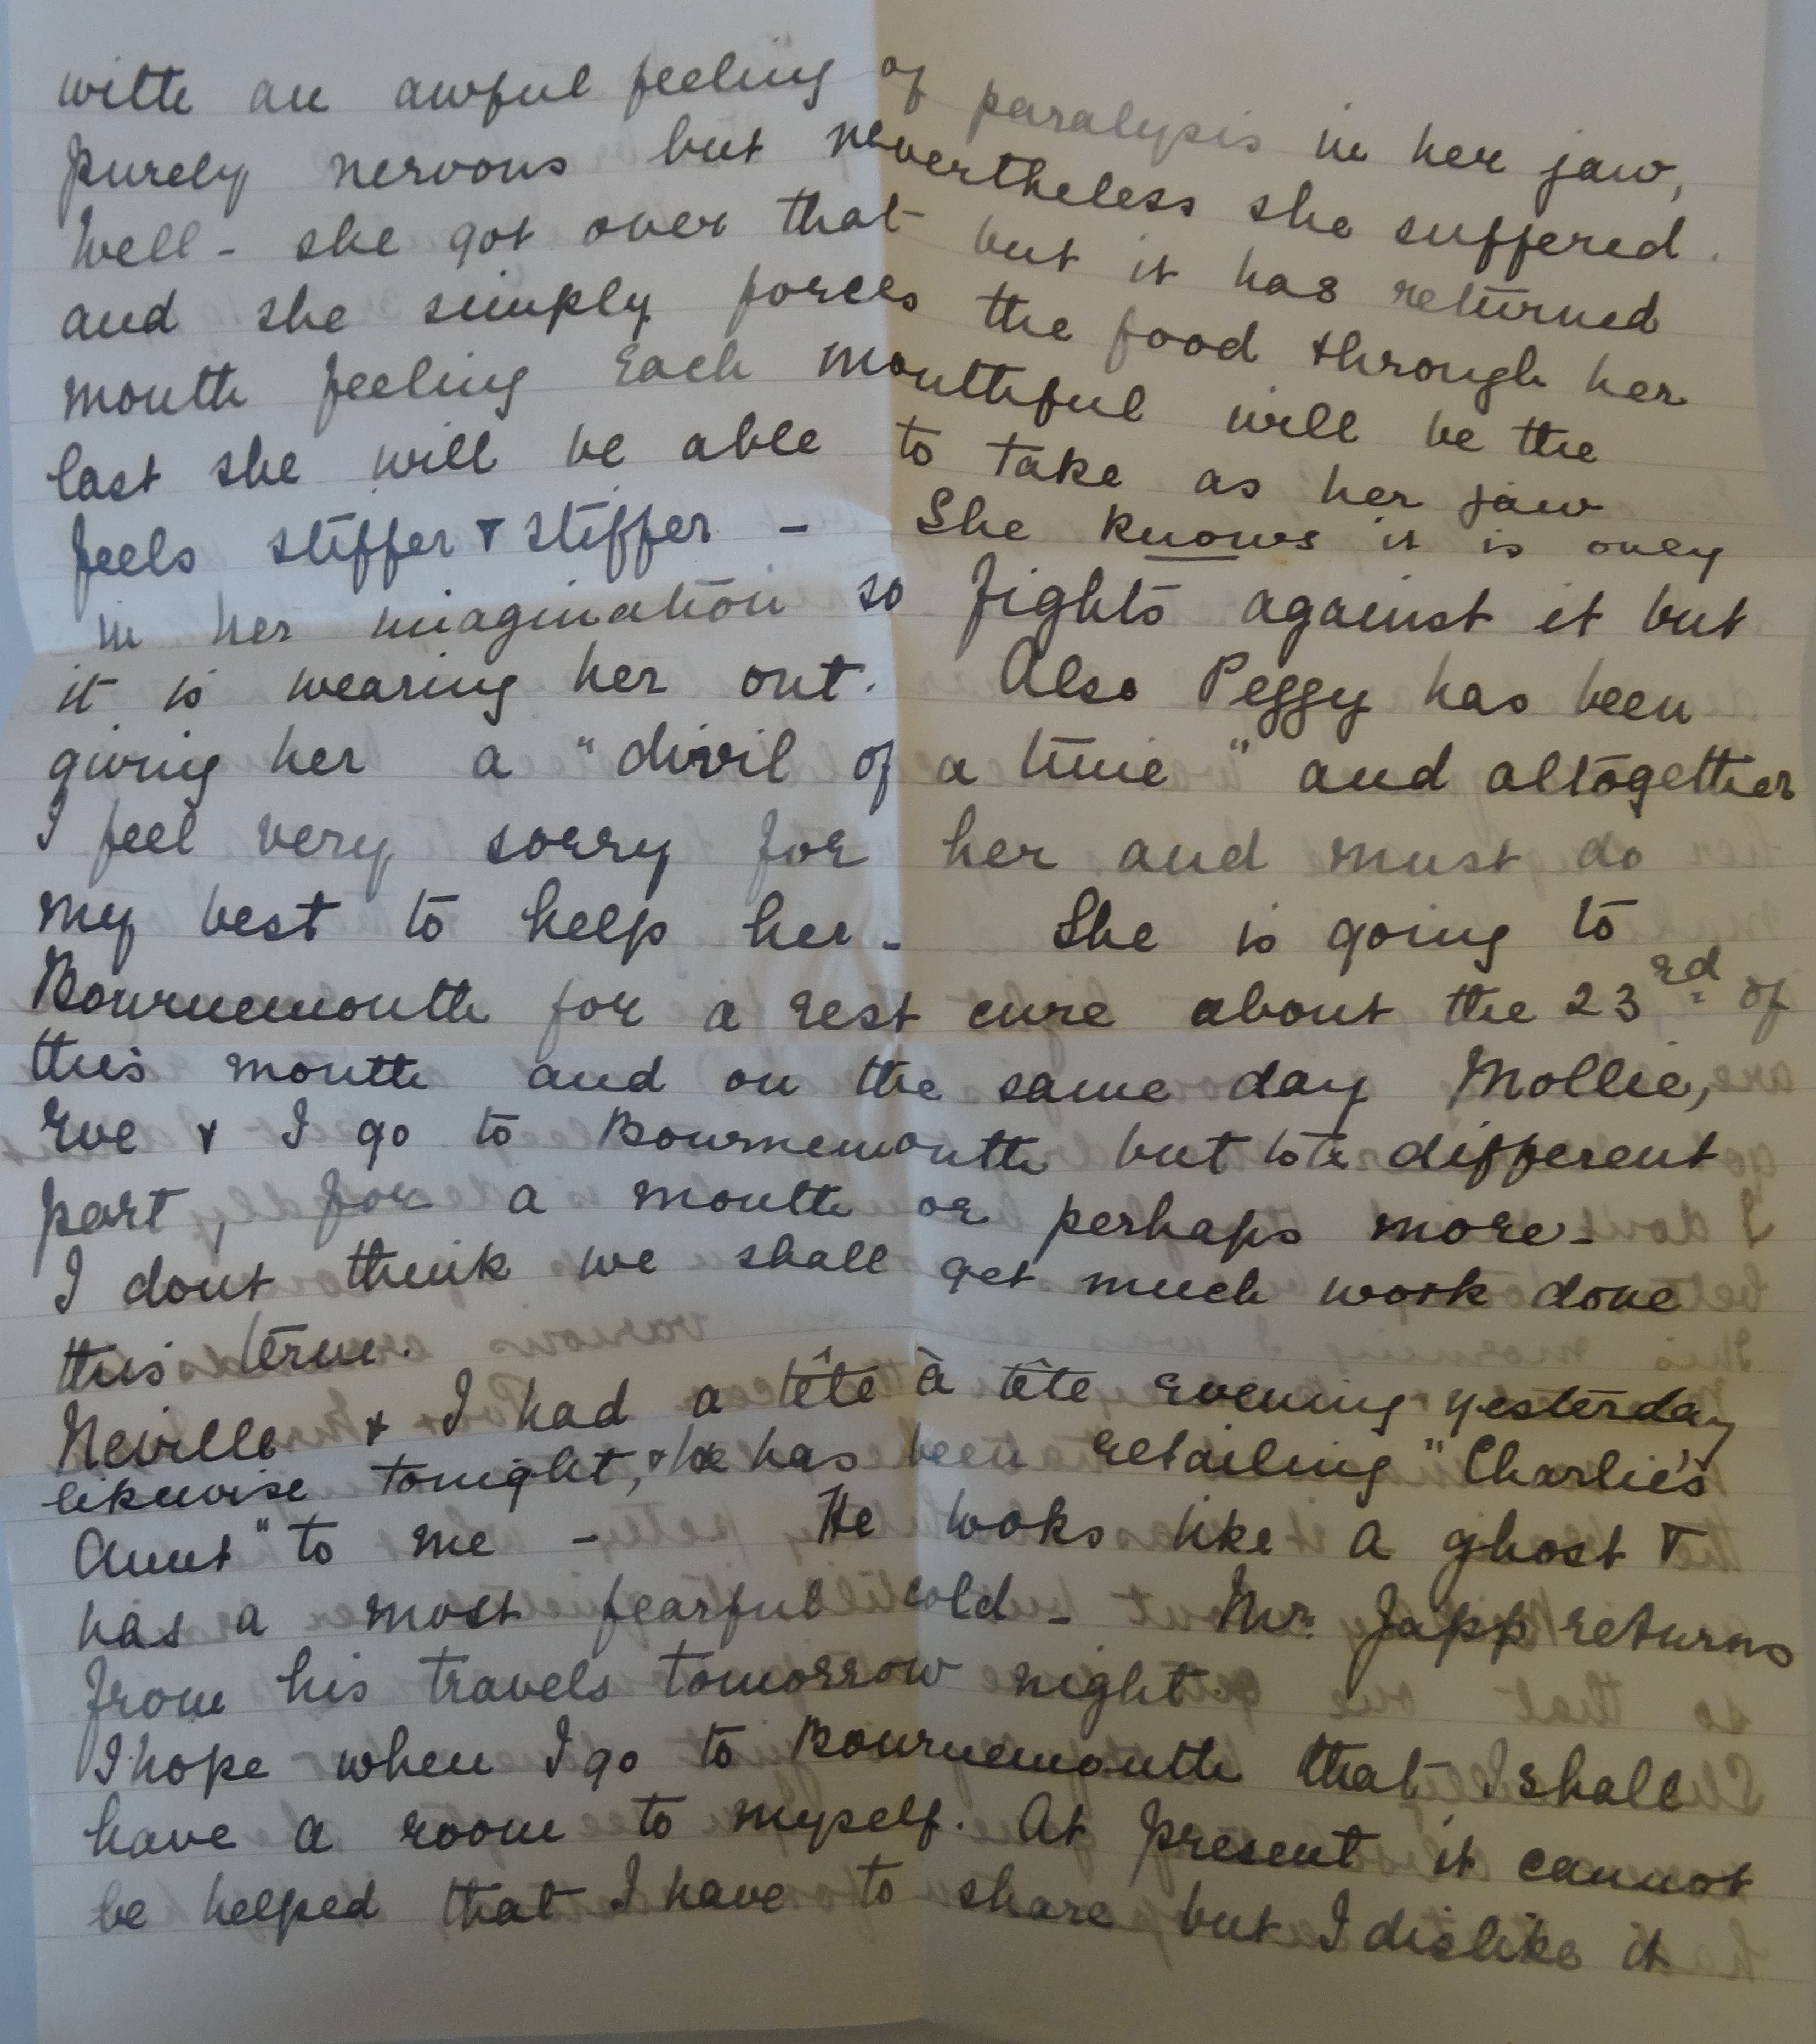 with an awful feeling of paralysis in her jaw,
purely nervous but nevertheless she suffered.
Well - she got over that but it has returned
and she simply forces the food through her
mouth feeling each mouthful will be the
last she will be able to take as her jaw
feels stiffer & stiffer - She knows it is only
in her imagination so fights against it but
it is wearing her out. Also Peggy has been
giving her a "divil of a time" and altogether
I feel very sorry for her and must do
my best to help her - She is going to
Bournemouth for a rest cure about the 23rd of
this month and on the same day Mollie,
Eve & I go to Bournemouth but to a different
part, for a month or perhaps more -
I dont think we shall get much work done
this term.
Neville & I had a tête à tête evening yesterday
likewise tonight, & he has been retailing "Charlie's
Aunt" to me - He looks like a ghost &
has a most fearful cold - Mr. Japp returns
from his travels tomorrow night.
I hope when I go to Bournemouth that I shall
have a room to myself. At present it cannot
be helped that I have to share but I dislike it